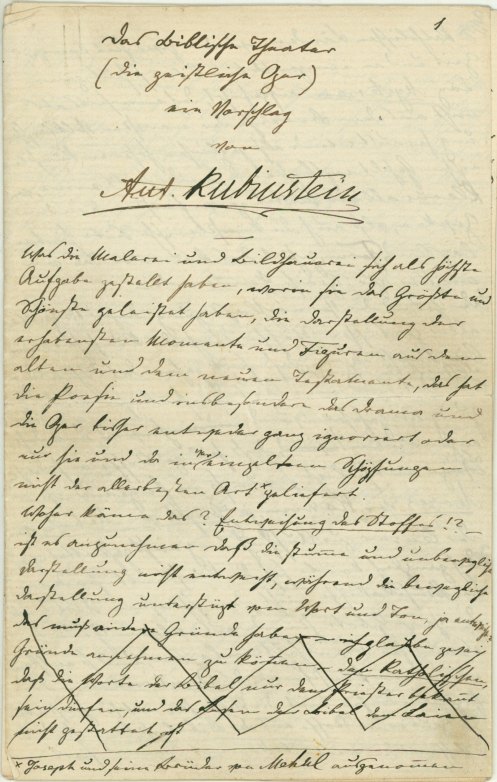 1
Das Biblische Theater
(die geistliche Oper)
ein Vorschlag
von
Ant. Rubinstein
Was die Malerei und Bildhauerei sich als höchste
Aufgabe gestellt haben, worin sie das Größte und
Schönste geleistet haben, die Darstellung der
erhabensten Momente und Figuren aus dem
alten und dem neuen Testamente, das hat
die Poesie und insbesondere das Drama und
die Oper bisher entweder ganz ignoriert oder
nur hie und da in einzelnen Schöpfungen
nicht der allerbesten Art* geliefert
Woher käme das? Entweihung des Stoffes!? –
ist es anzunehmen daß die stumme und unbewegliche
Darstellung nicht entweiht, während die bewegliche
Darstellung unterstüzt vom Wort und Ton, ja
das muß andere Gründe haben – ich glaube zwei
Gründe annehmen zu können – dem Katholischen,
daß die Worte der Bibel nur dem Priester bekannt
sein dürfen, und das Lesen der Bibel dem Laien
nicht gestattet ist
* Joseph und seine Brüder von Mehül ausgenommen